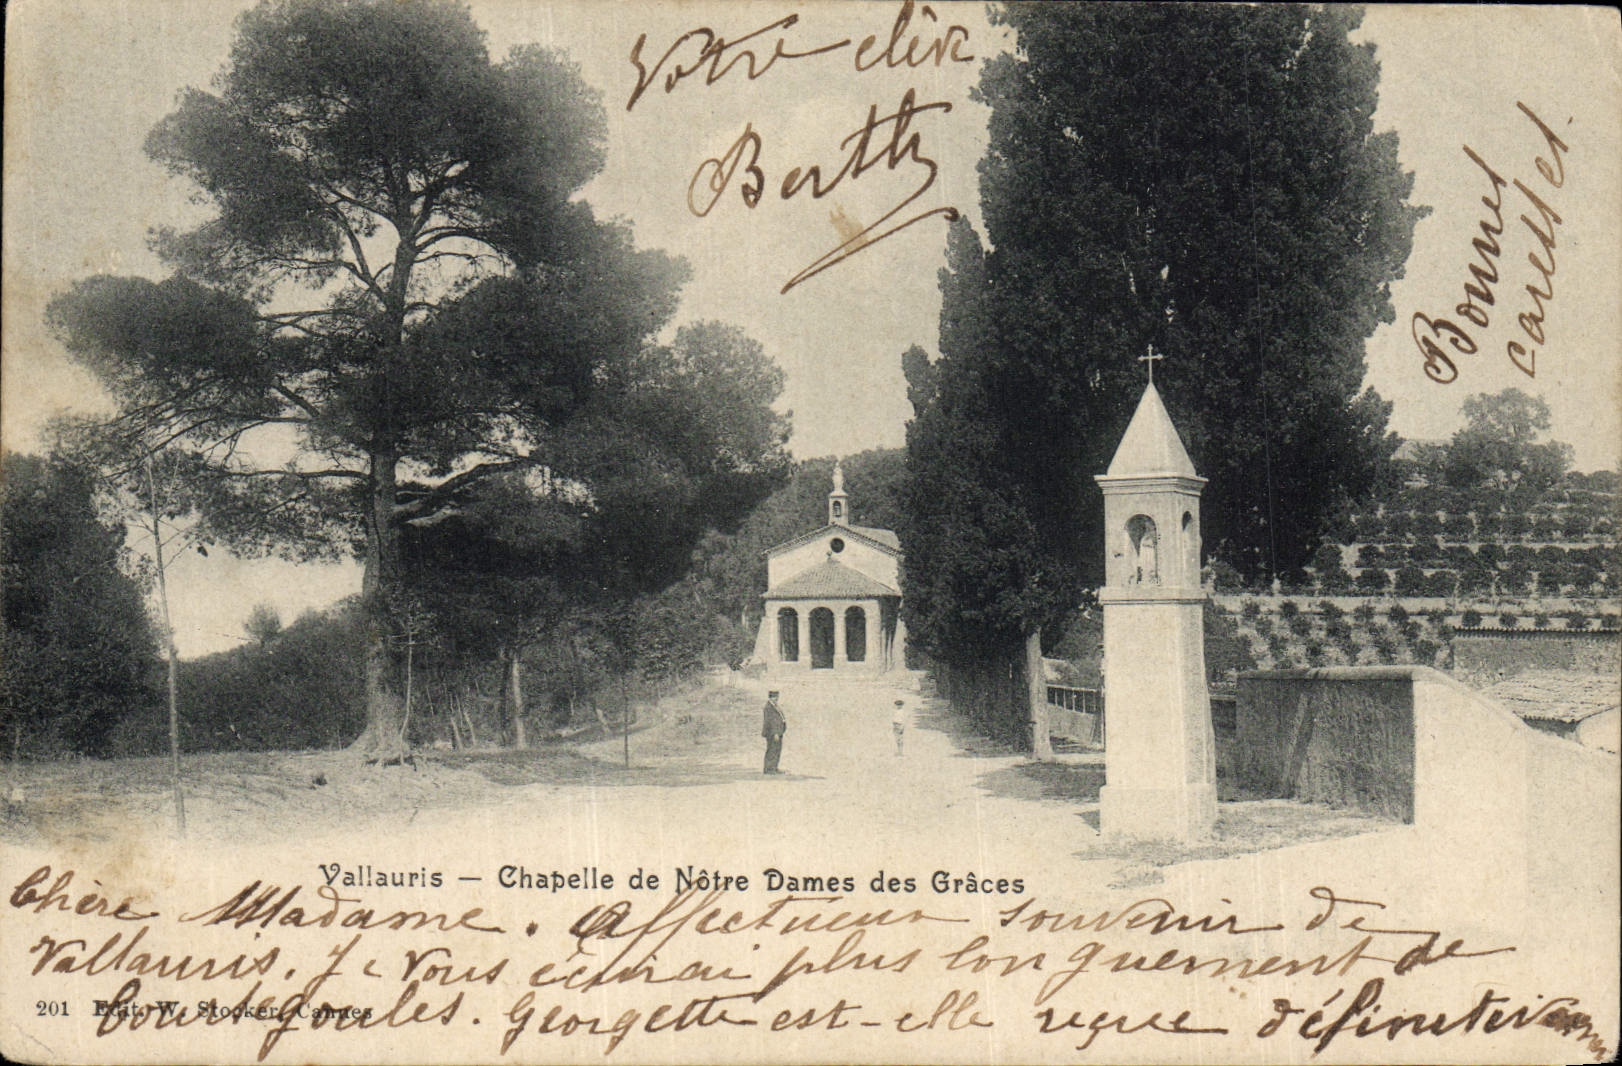 Votre élève
Berthe
Bonnet
caresset.
Vallauris — Chapelle de Nôtre Dames des Grâces
Chère Madame. Affectueux souvenir de
Vallauris. Je vous écrirai plus longuement de
201 Edit. W. Stocker, Cannes
Courségoules. Georgette est-elle reçue définitivem